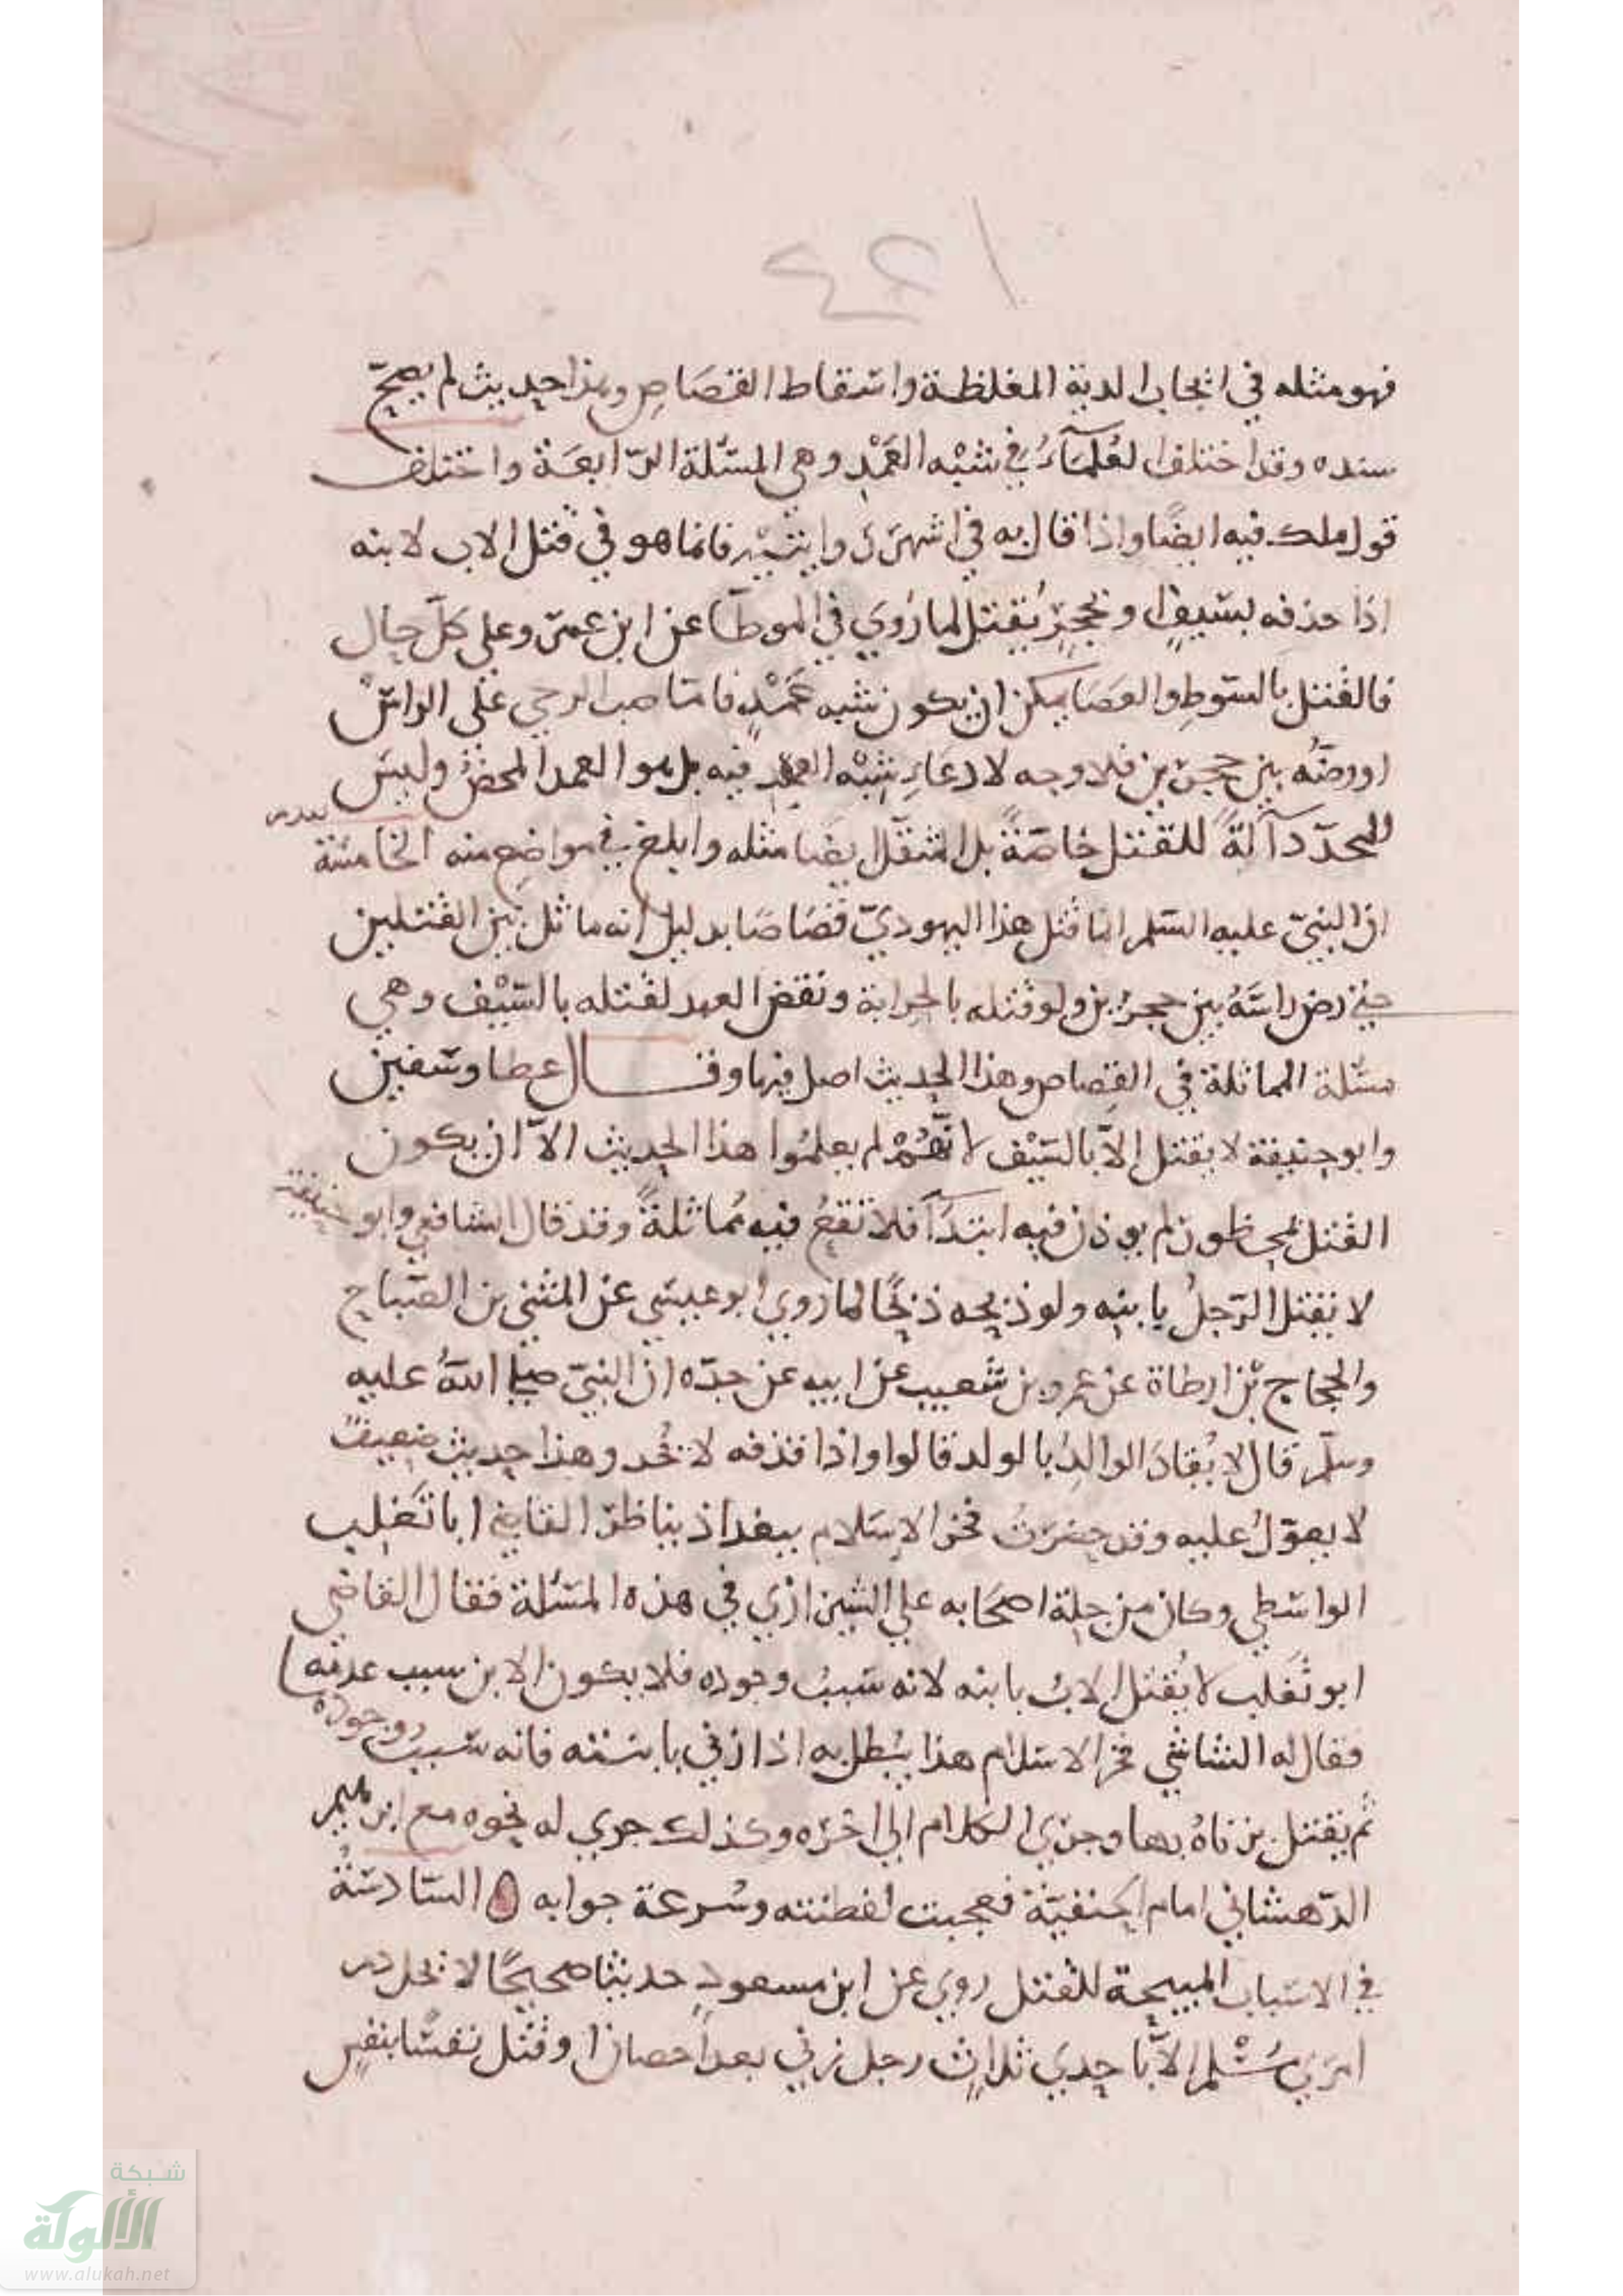 ١٢٤
فهو مثله في ايجاب الدية المغلظة واسقاط القصاص وهذا حديث لم يصح
سنده وقد اختلف العلماء في شبه العمد وهي المسئلة الرابعة واختلف
قول ملك فيه ايضا واذا قال به في اشهر فانما هو في قتل الاب لابنه
اذا حذفه بسيف او بحجر يقتل لما روي في الموطا عن ابن عمر وعلى كل حال
فالقتل بالسوط والعصا يمكن ان يكون شبه عمد فاما صب الرحي على الراس
او رضه بين حجرين فلا وجه لادعاء شبه العمد فيه بل هو العمد المحض وليس
المحدد آلة للقتل خاصة بل المثقل يضا مثله وابلغ في مواضع منه الخامسة
ان النبي عليه السلم انما قتل هذا اليهودي قصاصا بدليل انه ماثل بين القتلين
حين رض راسه بين حجرين ولو قتله بالحرابة ونقض العهد لقتله بالسيف وهي
مسئلة المماثلة في القصاص وهذا الحديث اصل فيها وقال عطا وسفين
وابو حنيفة لا يقتل الا بالسيف لانهم لم يعلموا هذا الحديث الا ان يكون
القتل بمحظور لم يوذن فيه ابتدآ فلا تقع فيه مماثلة وقد قال الشافعي وابو حنيفة
لا يقتل الرجل بابنه ولو ذبحه ذبحا لما روي ابو عيسي عن المثني بن الصباح
والحجاج بن ارطاة عن عمرو بن شعيب عن ابيه عن جده ان النبي صلى الله عليه
وسلم قال لا يقاد الوالد بالولد قالوا واذا قذفه لا يحد وهذا حديث ضعيف
لا يعول عليه وقد حضرت فخر الاسلام ببغداذ يناظر القاضي ابا تغلب
الواسطي وكان من جلة اصحابه علي الشيرازي في هذه المسئلة فقال القاضي
ابو تغلب لا يقتل الاب بابنه لانه سبب وجوده فلا يكون الابن سبب عدمه
فقال له الشاشي فخر الاسلام هذا يبطل به اذا زني بابنته فانه سبب وجوده
ثم يقتل بزناه بها وجري الكلام الي اخره وكذلك جري له نحوه مع
الدهشاني امام الحنفية فعجبت لفطنته وسرعة جوابه ه السادسة
في الاسباب المبيحة للقتل روي عن ابن مسعود حديثا صحيحا لا يحل دم
امرئ مسلم الا باحدي ثلاث رجل زني بعد احصان او قتل نفسا بنفس
شبكة
الألوكة
www.alukah.net